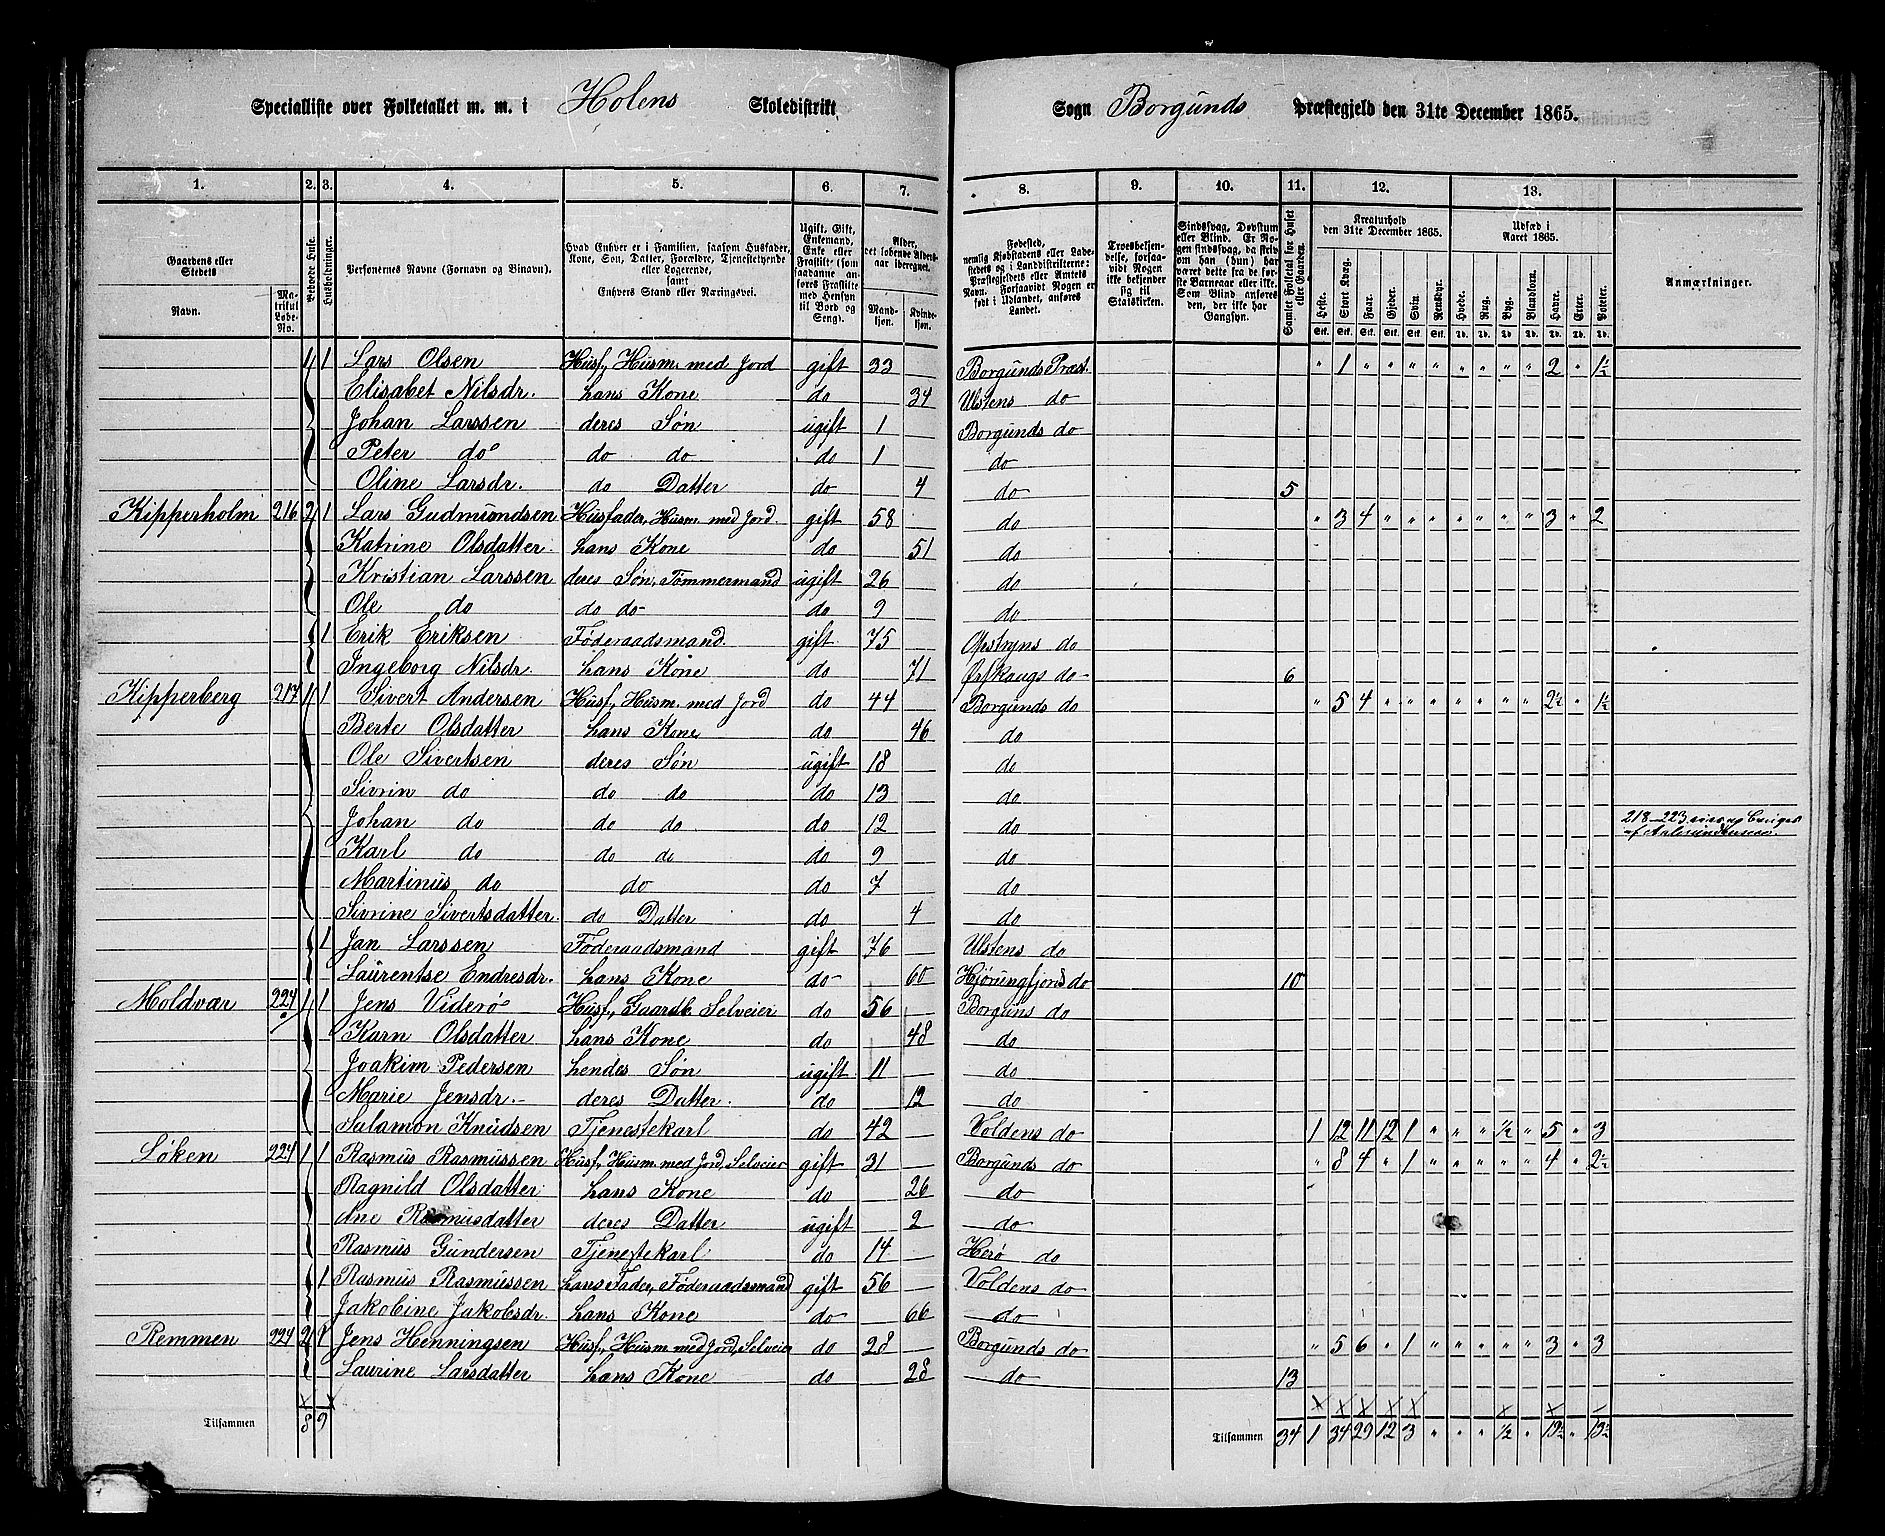 Specialliste over Folketallet m. m. i Holens Skoledistrikt
Sogn Borgunds Præstegjeld den 31te December 1865.
1. 2. 3. 4. 5. 6. 7. 8. 9. 10. 11. 12. 13.
Gaardens eller Stedets
Navn. Matrikul Løbe-No.
Beboede Huse.
Husholdninger.
Personernes Navne (Fornavn og Binavn).
Hvad Enhver er i Familien, saasom Husfader, Kone, Søn, Datter, Forældre, Tjenestetyende eller Logerende, samt Enhvers Stand eller Næringsvei.
Ugift, Gift, Enkemand, Enke eller Fraskilt (som saadanne anføres Fraskilte med Hensyn til Bord og Seng).
Alder, det løbende Aldersaar iberegnet.
Mandkjøn. Kvindekjøn.
Fødested, nemlig Kjøbstadens eller Ladestedets og i Landdistrikterne: Præstegjeldets eller Amtets Navn. Forsaavidt Nogen er født i Udlandet, anføres Landet.
Troesbekjendelse, forsaavidt Nogen ikke bekjender sig til Statskirken.
Sindssvag, Døvstum eller Blind. Er Nogen sindssvag, da Hvorvidt han (hun) har været dette fra de første Barneaar eller ikke. Som Blind anføres den, der ikke har Gangsyn.
Samlet Folketal for Huset eller Gaarden.
Kreaturhold den 31te December 1865.
Heste. Stort Kvæg. Faar. Gjeder. Svin. Rensdyr.
Udsæd i Aaret 1865.
Hvede. Rug. Byg. Blandkorn. Havre. Erter. Poteter.
Anmærkninger.
1 1 Lars Olsen Husf., Husm. med Jord gift 33 Borgunds Præst. " 1 " " " " " " " " 2 " 1½
Elisabet Nilsdr. hans Kone do 34 Ulstens do
Johan Larssen deres Søn ugift 1 Borgunds do
Peter do do do do 1 do
Oline Larsdr. do Datter do 4 do 5
Kipperholm 216 2 1 Lars Gudmundsen Husfader, Husm. med Jord. gift 58 do " 3 4 " " " " " " " 3 " 2
Katrine Olsdatter hans Kone do 51 do
Kristian Larssen deres Søn, Tømmermand ugift 26 do
Ole do do do do 9 do
1 Erik Eriksen Føderaadsmand gift 75 Opstryns do
Ingeborg Nilsdr. hans Kone do 71 Ørskougs do 6
Kipperberg 217 1 1 Sivert Andersen Husf., Husm. med Jord do 44 Borgunds do " 5 4 " " " " " " " 2½ " 1½
Berte Olsdatter hans Kone do 46 do
Ole Sivertsen deres Søn ugift 18 do
Sivrin do do do do 13 do
Johan do do do do 12 do
218-223 af Aalesundernes
Karl do do do do 9 do
Martinus do do do 7 do
Sivrine Sivertsdatter do Datter do 4 do
1 Jan Larssen Føderaadsmand gift 76 Ulstens do
Laurentse Endresdr. hans Kone do 60 Hjørungfjords do 10
Moldvær 224 1 1 Jens Viderø Husf., Gaardb. Selveier do 56 Borguns do
Karn Olsdatter hans Kone do 48 do
Joakim Pedersen hendes Søn ugift 11 do
Marie Jensdr. deres Datter do 12 do
Salamon Knudsen Tjenestekarl do 42 Voldens do 1 12 11 12 1 " " " ½ " 5 " 3
Søken 224 1 1 Rasmus Rasmussen Husf., Husm. med Jord, Selveier gift 31 Borgunds do " 8 4 " 1 " " " " " 4 " 2½
Ragnild Olsdatter hans Kone do 26 do
Ane Rasmusdatter deres Datter ugift 2 do
Rasmus Gundersen Tjenestekarl do 14 Herø do
1 Rasmus Rasmussen hans Fader, Føderaadsmand gift 56 Voldens do
Jakobine Jakobsdr. hans Kone do 66 do
Remmen 224 2 1 Jens Henningsen Husf., Husm. med Jord, Selveier do 28 Borgunds do " 5 6 " 1 " " " " " 3 " 3
Laurine Larsdatter hans Kone do 28 do 13
Tilsammen 8 9
Tilsammen 34 1 34 29 12 3 " " " ½ " 19½ " 13½